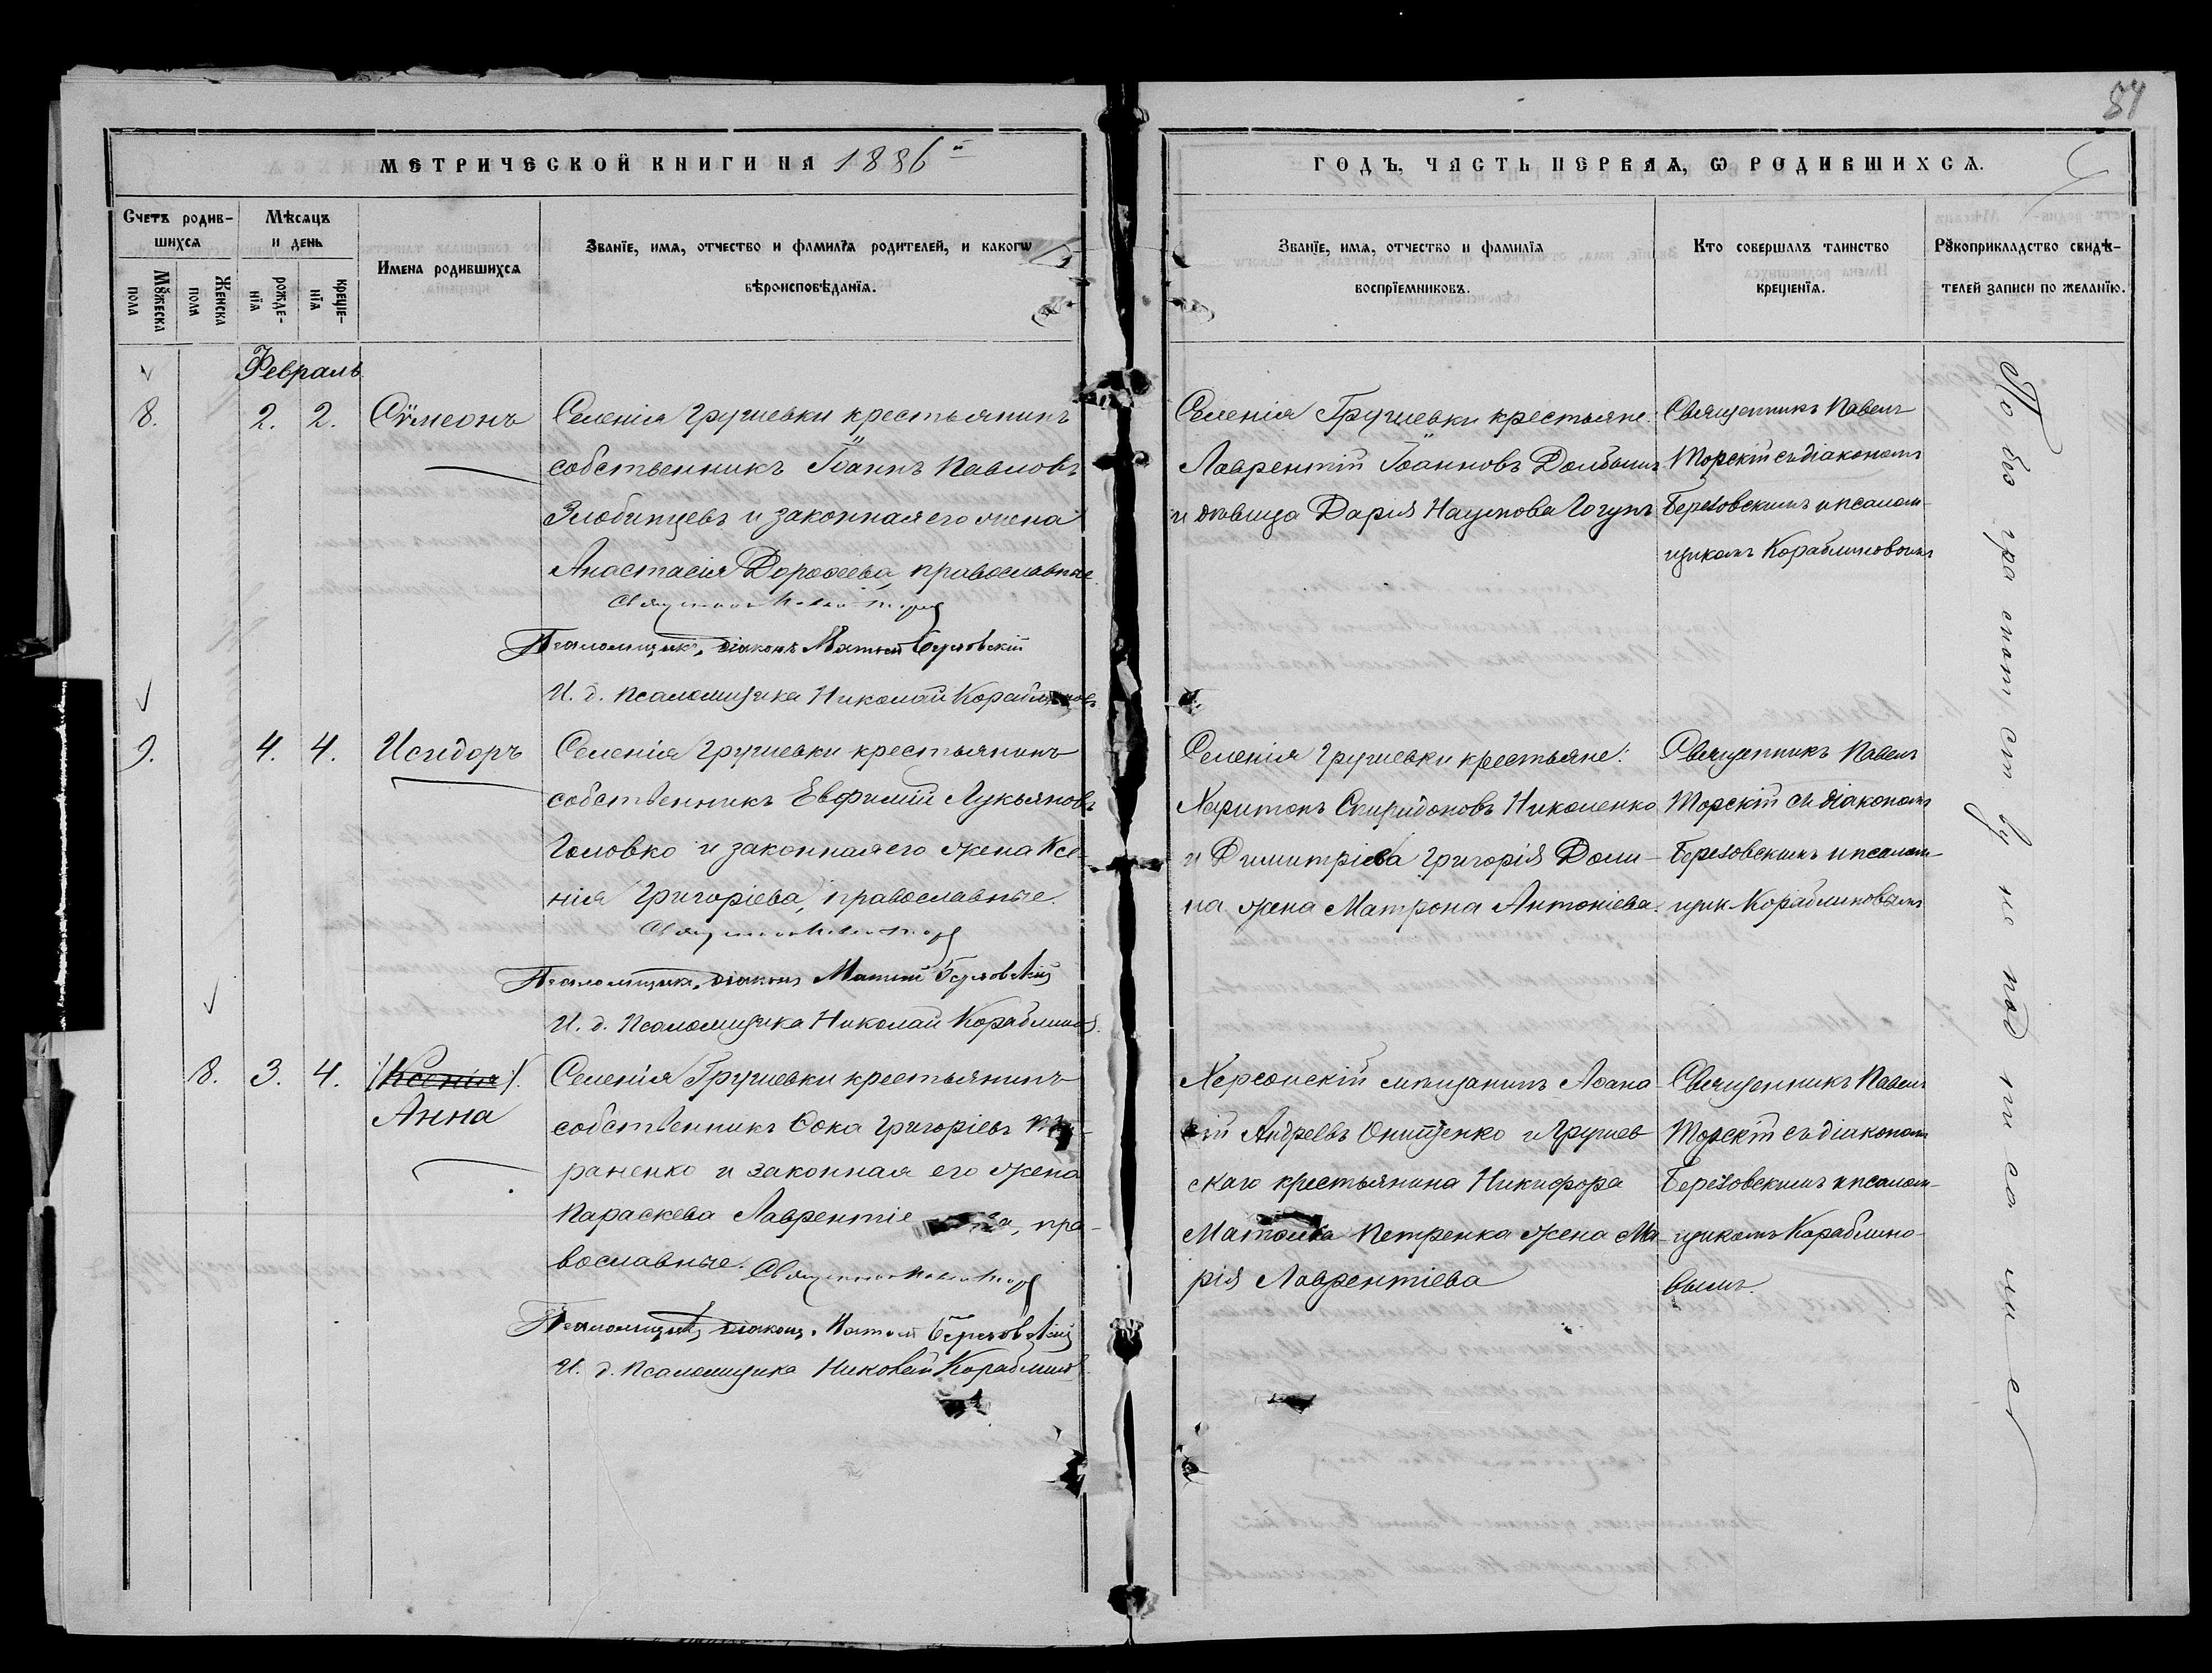 84
МЕТРИЧЕСКОЙ КНИГИ НА 1886 й
ГОДЪ, ЧАСТЬ ПЕРВАЯ, Ѡ РОДИВШИХСЯ.
Счетъ родив-
шихся
Мѣсяцъ
и день
Мꙋжеска
пола
Женска
пола
рожде-
нїя
креще-
нїя
Имена родившихся
Званїе, имя, отчество и фамилїя родителей, и какогѡ
вѣроисповѣданїя.
Званїе, имя, отчество и фамилїя
воспрїемниковъ.
Кто совершалъ таинство
крещенїя.
Рꙋкоприкладство свидѣ-
телей записи по желанїю.
Февраль
8. 2. 2. Сѵмеонъ
Селенія Грушевки крестьянинъ
собственникъ Іоаннъ Павловъ
Злобинцевъ и законная его жена
Анастасія Дороѳеева, православные.
Псаломщикъ, діаконъ Матѳей Березовскій
И. д. Псаломщика Николай Кораблиновъ
Селенія Грушевки крестьяне:
Лаврентій Іоанновъ
и дѣвица Дарія Наумова Гогунъ
Священникъ Павелъ
Морскій съ діакономъ
Березовскимъ и псалом-
щикомъ Кораблиновымъ
9. 4. 4. Исидоръ
Селенія Грушевки крестьянинъ
собственникъ Евфимій Лукьяновъ
Головко и законная его жена Ксе-
нія Григоріева, православные.
Псаломщикъ, діаконъ Матѳей Березовскій
И. д. Псаломщика Николай Кораблиновъ.
Селенія Грушевки крестьяне:
Харитонъ Спиридоновъ Николенко
и Димитріева Григорія Доли-
на жена Матрона Антоніева.
Священникъ Павелъ
Морскій съ діакономъ
Березовскимъ и псалом-
щик. Кораблиновымъ
8. 3. 4. /Ксенія/.
Анна
Селенія Грушевки крестьянинъ
собственникъ Ѳока Григоріевъ
раненко и законная его жена
Параскева Лаврентіе ва, пра-
вославные.
Псаломщикъ, діаконъ Матѳей Березовскій
И. д. Псаломщика Николай Кораблиновъ
Херсонскій мѣщанинъ Аѳана-
сій Андреевъ Онищенко и Грушев-
скаго крестьянина Никифора
Петренка жена Ма-
рія Лаврентіева
Священникъ Павелъ
Морскій съ діакономъ
Березовскимъ и псалом-
щикомъ Кораблино-
вымъ.
По безграмотству не подписались